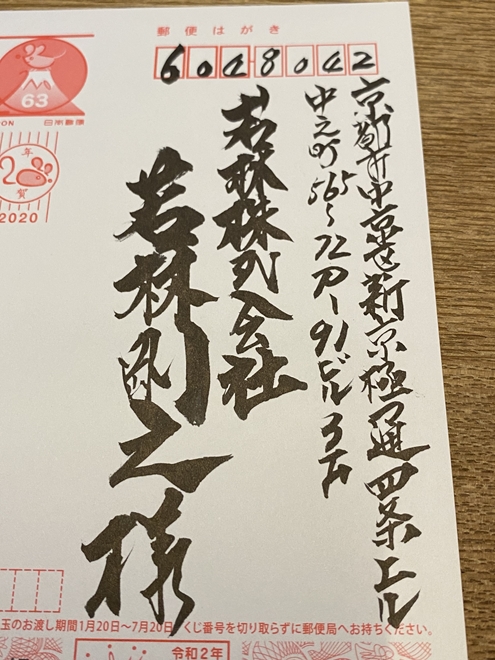 郵便はがき
6048042
京都市中京区新京極通四条上ル
中之町565〜72P-91ビル3F
若林株式会社
若林剛之様
63
日本郵便
年
賀
2020
玉のお渡し期間1月20日〜7月20日 くじ番号を切り取らずに郵便局へお持ちください。
令和2年